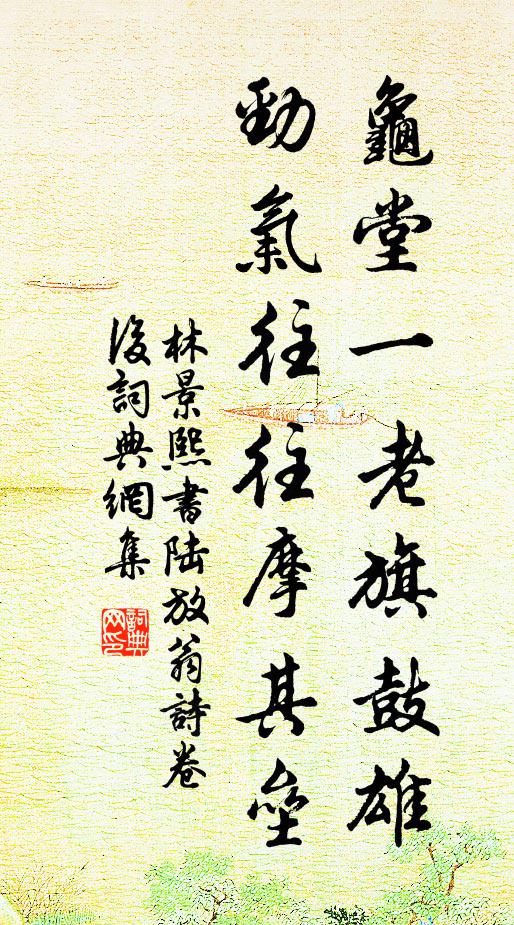 龜堂一老旗鼓雄
勁氣往往摩其壘
林景熙書陸放翁詩卷
後詞典網集
詞典
网印